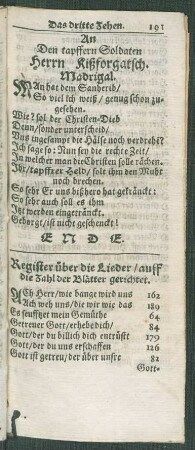 Das dritte Zehen. 191
An
Den tapffern Soldaten
Herrn Kißforgatsch.
Madrigal.
MAn hat dem Sanherib/
So viel ich weiß/ genug schon zu-
gesehen.
Wie? sol der Christen-Dieb
Denn/ sonder unterscheid/
Uns ingesampt die Hälse noch verdrehē?
Ich sage so: Nun sey die rechte Zeit/
In welcher man die Christen solle rächen.
Ihr/ tapffrer Held/ solt ihm den Muht
noch brechen.
So sehr Er uns bißhero hat gekränckt:
So sehr auch soll es ihm
Itzt werden eingetränckt.
Geborgt/ ist nicht geschenckt!
ENDE.
Register über die Lieder/ auff
die Zahl der Blätter gerichtet.
ACh Herr/ wie bange wird uns 162
Ach weh uns/ die wir wie das 189
Es seufftzet mein Gemüthe 64
Getreuer Gott/ erhebe dich/ 84
Gott/ der du billich dich entrüst 179
Gott/ der du uns erschaffen 126
Gott ist getreu/ der über unsre 82
Gott-